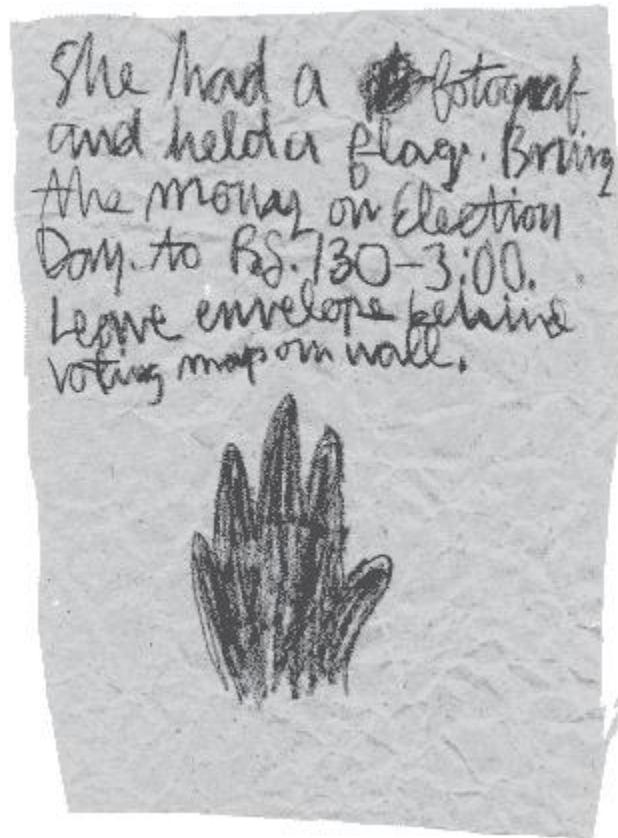 She had a fotograf
and held a flag. Bring
the money on Election
Day. to P.S. 130-3:00.
Leave envelope behind
voting map on wall.